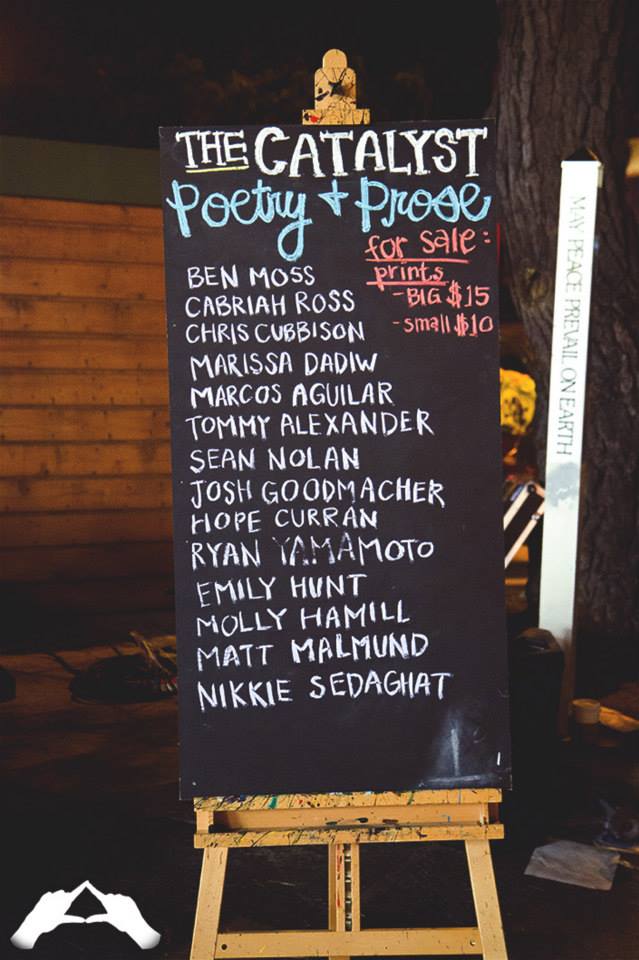 THE CATALYST
Poetry + Prose
for sale:
prints
- BIG $15
- small $10
BEN MOSS
CABRIAH ROSS
CHRIS CUBBISON
MARISSA DADIW
MARCOS AGUILAR
TOMMY ALEXANDER
SEAN NOLAN
JOSH GOODMACHER
HOPE CURRAN
RYAN YAMAMOTO
EMILY HUNT
MOLLY HAMILL
MATT MALMUND
NIKKIE SEDAGHAT
MAY PEACE PREVAIL ON EARTH